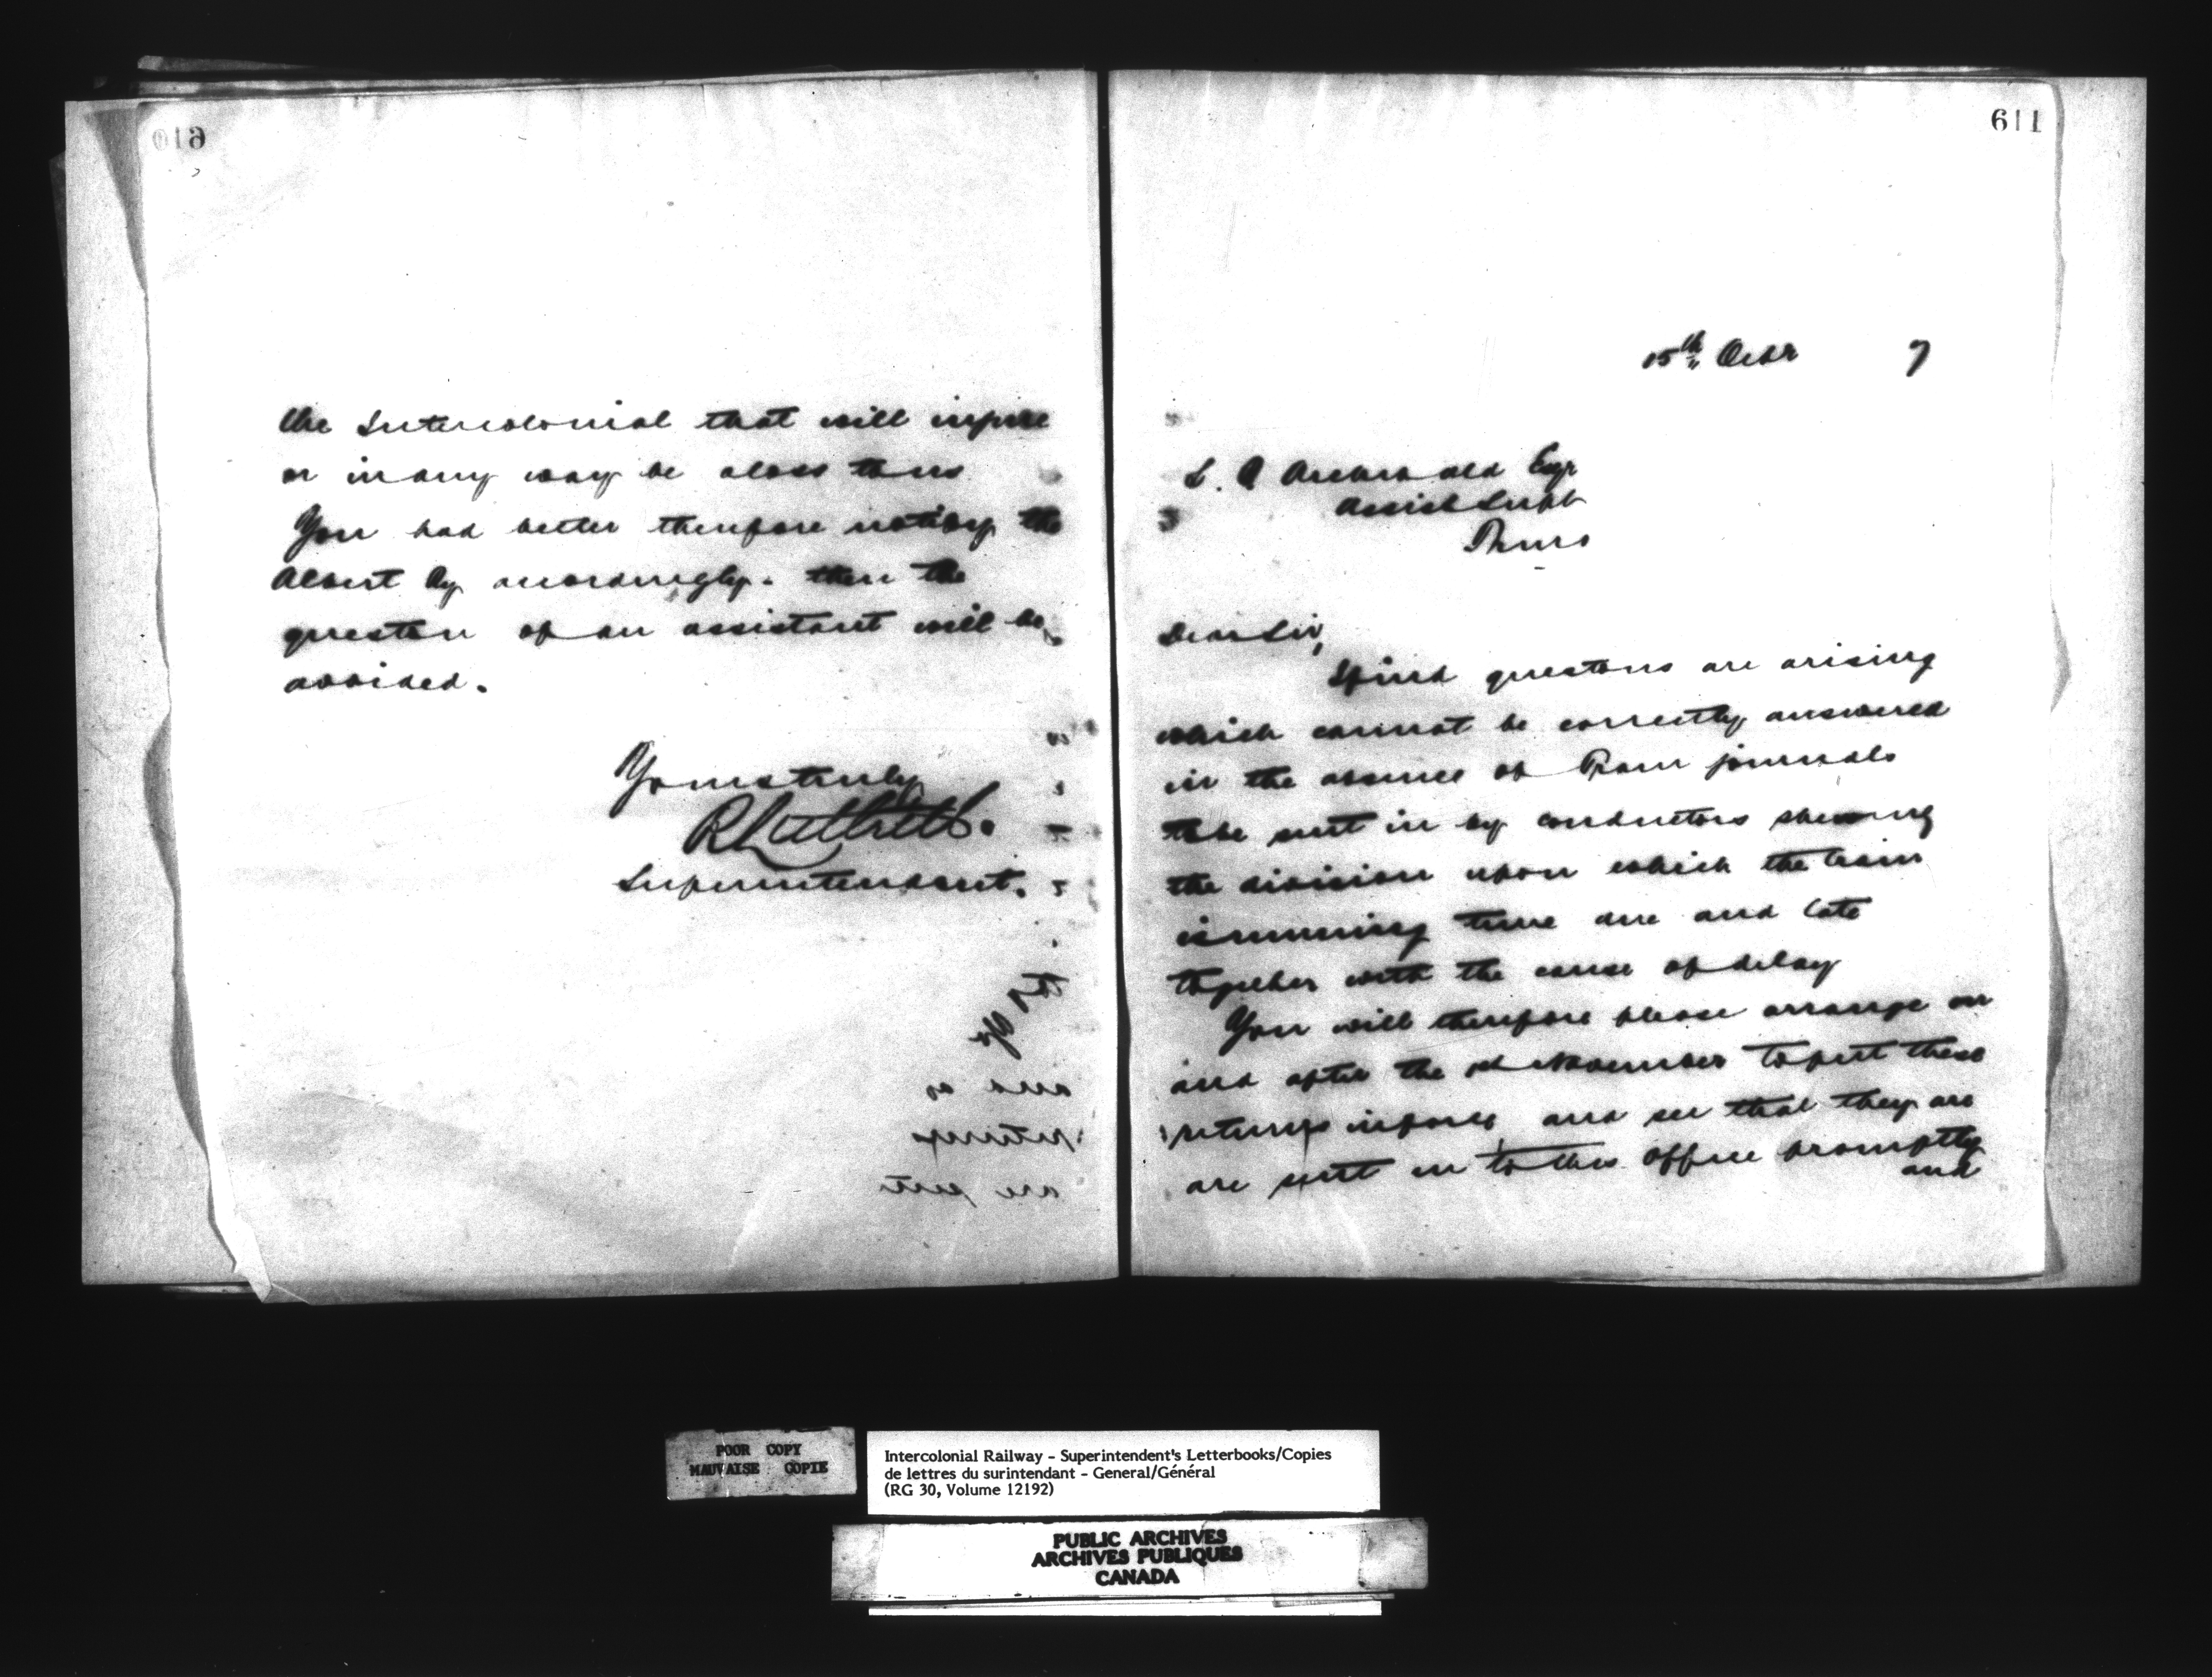 610
the Intercolonial that will injure
or in any way be a loss to us
You had better therefore notify the
Albert Ry accordingly. then the
question of an assistant will be
avoided.
Yours truly
R Luttrell.
Superintendent.
611
15th Octr 7
L. A Archibald Esqr
Assist Supt
Truro
Dear Sir,
I find questions are arising
which cannot be correctly answered
in the absence of Train journals
to be sent in by conductors shewing
the division upon which the train
is running time due and late
together with the cause of delay
You will therefore please arrange on
and after the 1st November to put these
returns in force and see that they are
are sent in to this office promptly
and
POOR COPY
MAUVAISE COPIE
Intercolonial Railway - Superintendent's Letterbooks/Copies
de lettres du surintendant - General/Général
(RG 30, Volume 12192)
PUBLIC ARCHIVES
ARCHIVES PUBLIQUES
CANADA